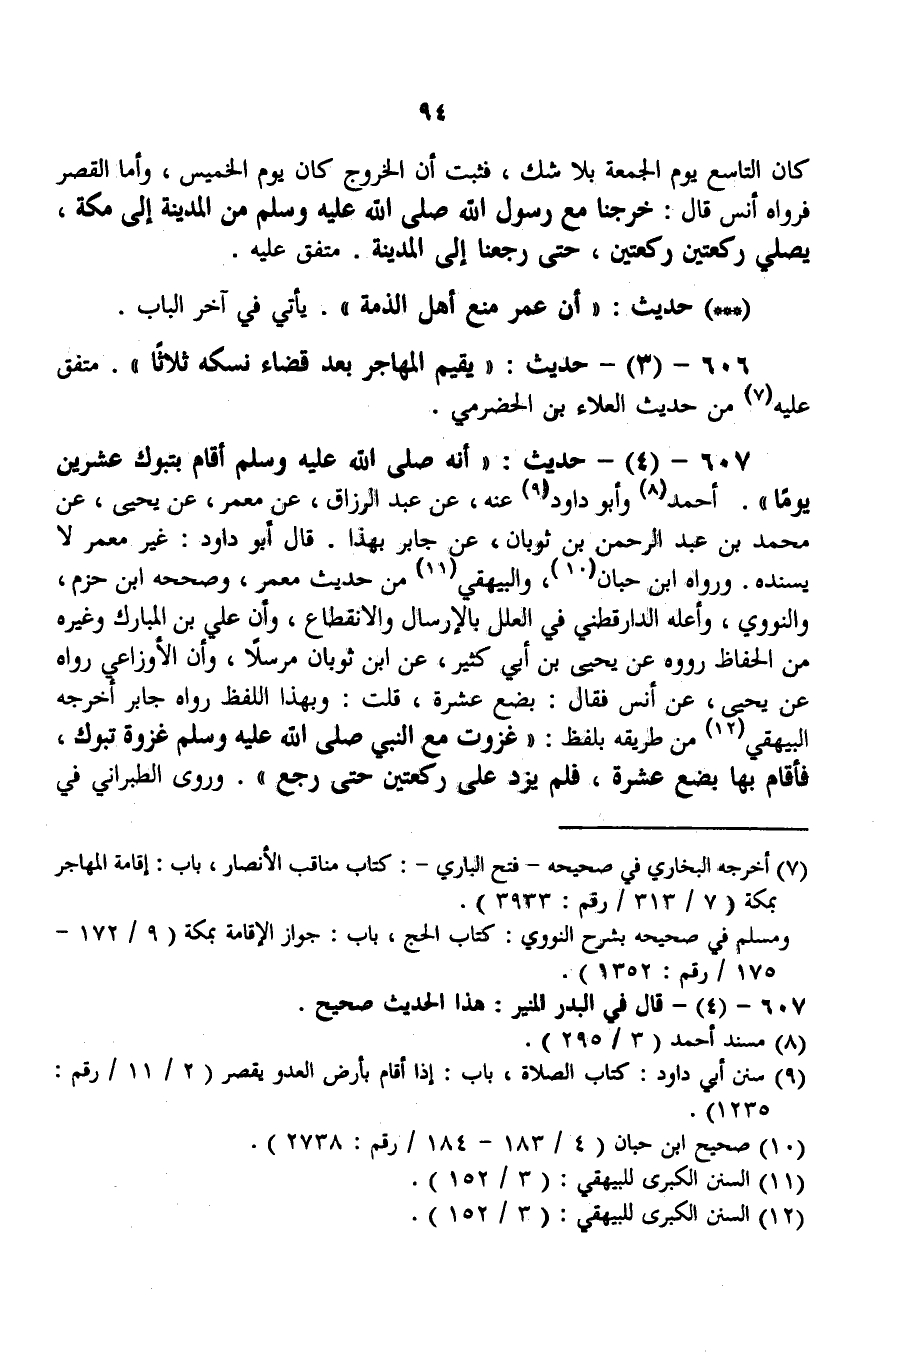 ٩٤
كان التاسع يوم الجمعة بلا شك ، فثبت أن الخروج كان يوم الخميس ، وأما القصر
فرواه أنس قال : خرجنا مع رسول الله صلى الله عليه وسلم من المدينة إلى مكة ،
يصلي ركعتين ركعتين ، حتى رجعنا إلى المدينة . متفق عليه .
(***) حديث : « أن عمر منع أهل الذمة » . يأتي في آخر الباب .
٦٠٦ – (٣) – حديث : « يقيم المهاجر بعد قضاء نسكه ثلاثًا » . متفق
عليه(٧) من حديث العلاء بن الحضرمي .
٦٠٧ – (٤) – حديث : « أنه صلى الله عليه وسلم أقام بتبوك عشرين
يومًا » . أحمد(٨) وأبو داود(٩) عنه ، عن عبد الرزاق ، عن معمر ، عن يحيى ، عن
محمد بن عبد الرحمن بن ثوبان ، عن جابر بهذا . قال أبو داود : غير معمر لا
يسنده . ورواه ابن حبان(١٠)، والبيهقي(١١) من حديث معمر ، وصححه ابن حزم ،
والنووي ، وأعله الدارقطني في العلل بالإرسال والانقطاع ، وأن علي بن المبارك وغيره
من الحفاظ رووه عن يحيى بن أبي كثير ، عن ابن ثوبان مرسلًا ، وأن الأوزاعي رواه
عن يحيى ، عن أنس فقال : بضع عشرة ، قلت : وبهذا اللفظ رواه جابر أخرجه
البيهقي(١٢) من طريقه بلفظ : « غزوت مع النبي صلى الله عليه وسلم غزوة تبوك ،
فأقام بها بضع عشرة ، فلم يزد على ركعتين حتى رجع » . وروى الطبراني في
(٧) أخرجه البخاري في صحيحه – فتح الباري – : كتاب مناقب الأنصار ، باب : إقامة المهاجر
بمكة ( ٧ / ٣١٣ / رقم : ٣٩٣٣ ) .
ومسلم في صحيحه بشرح النووي : كتاب الحج ، باب : جواز الإقامة بمكة ( ٩ / ١٧٢ –
١٧٥ / رقم : ١٣٥٢ ) .
٦٠٧ – (٤) – قال في البدر المنير : هذا الحديث صحيح .
(٨) مسند أحمد ( ٣ / ٢٩٥ ) .
(٩) سنن أبي داود : كتاب الصلاة ، باب : إذا أقام بأرض العدو يقصر ( ٢ / ١١ / رقم :
١٢٣٥) .
(١٠) صحيح ابن حبان ( ٤ / ١٨٣ – ١٨٤ / رقم : ٢٧٣٨ ) .
(١١) السنن الكبرى للبيهقي : ( ٣ / ١٥٢ ) .
(١٢) السنن الكبرى للبيهقي : ( ٣ / ١٥٢ ) .